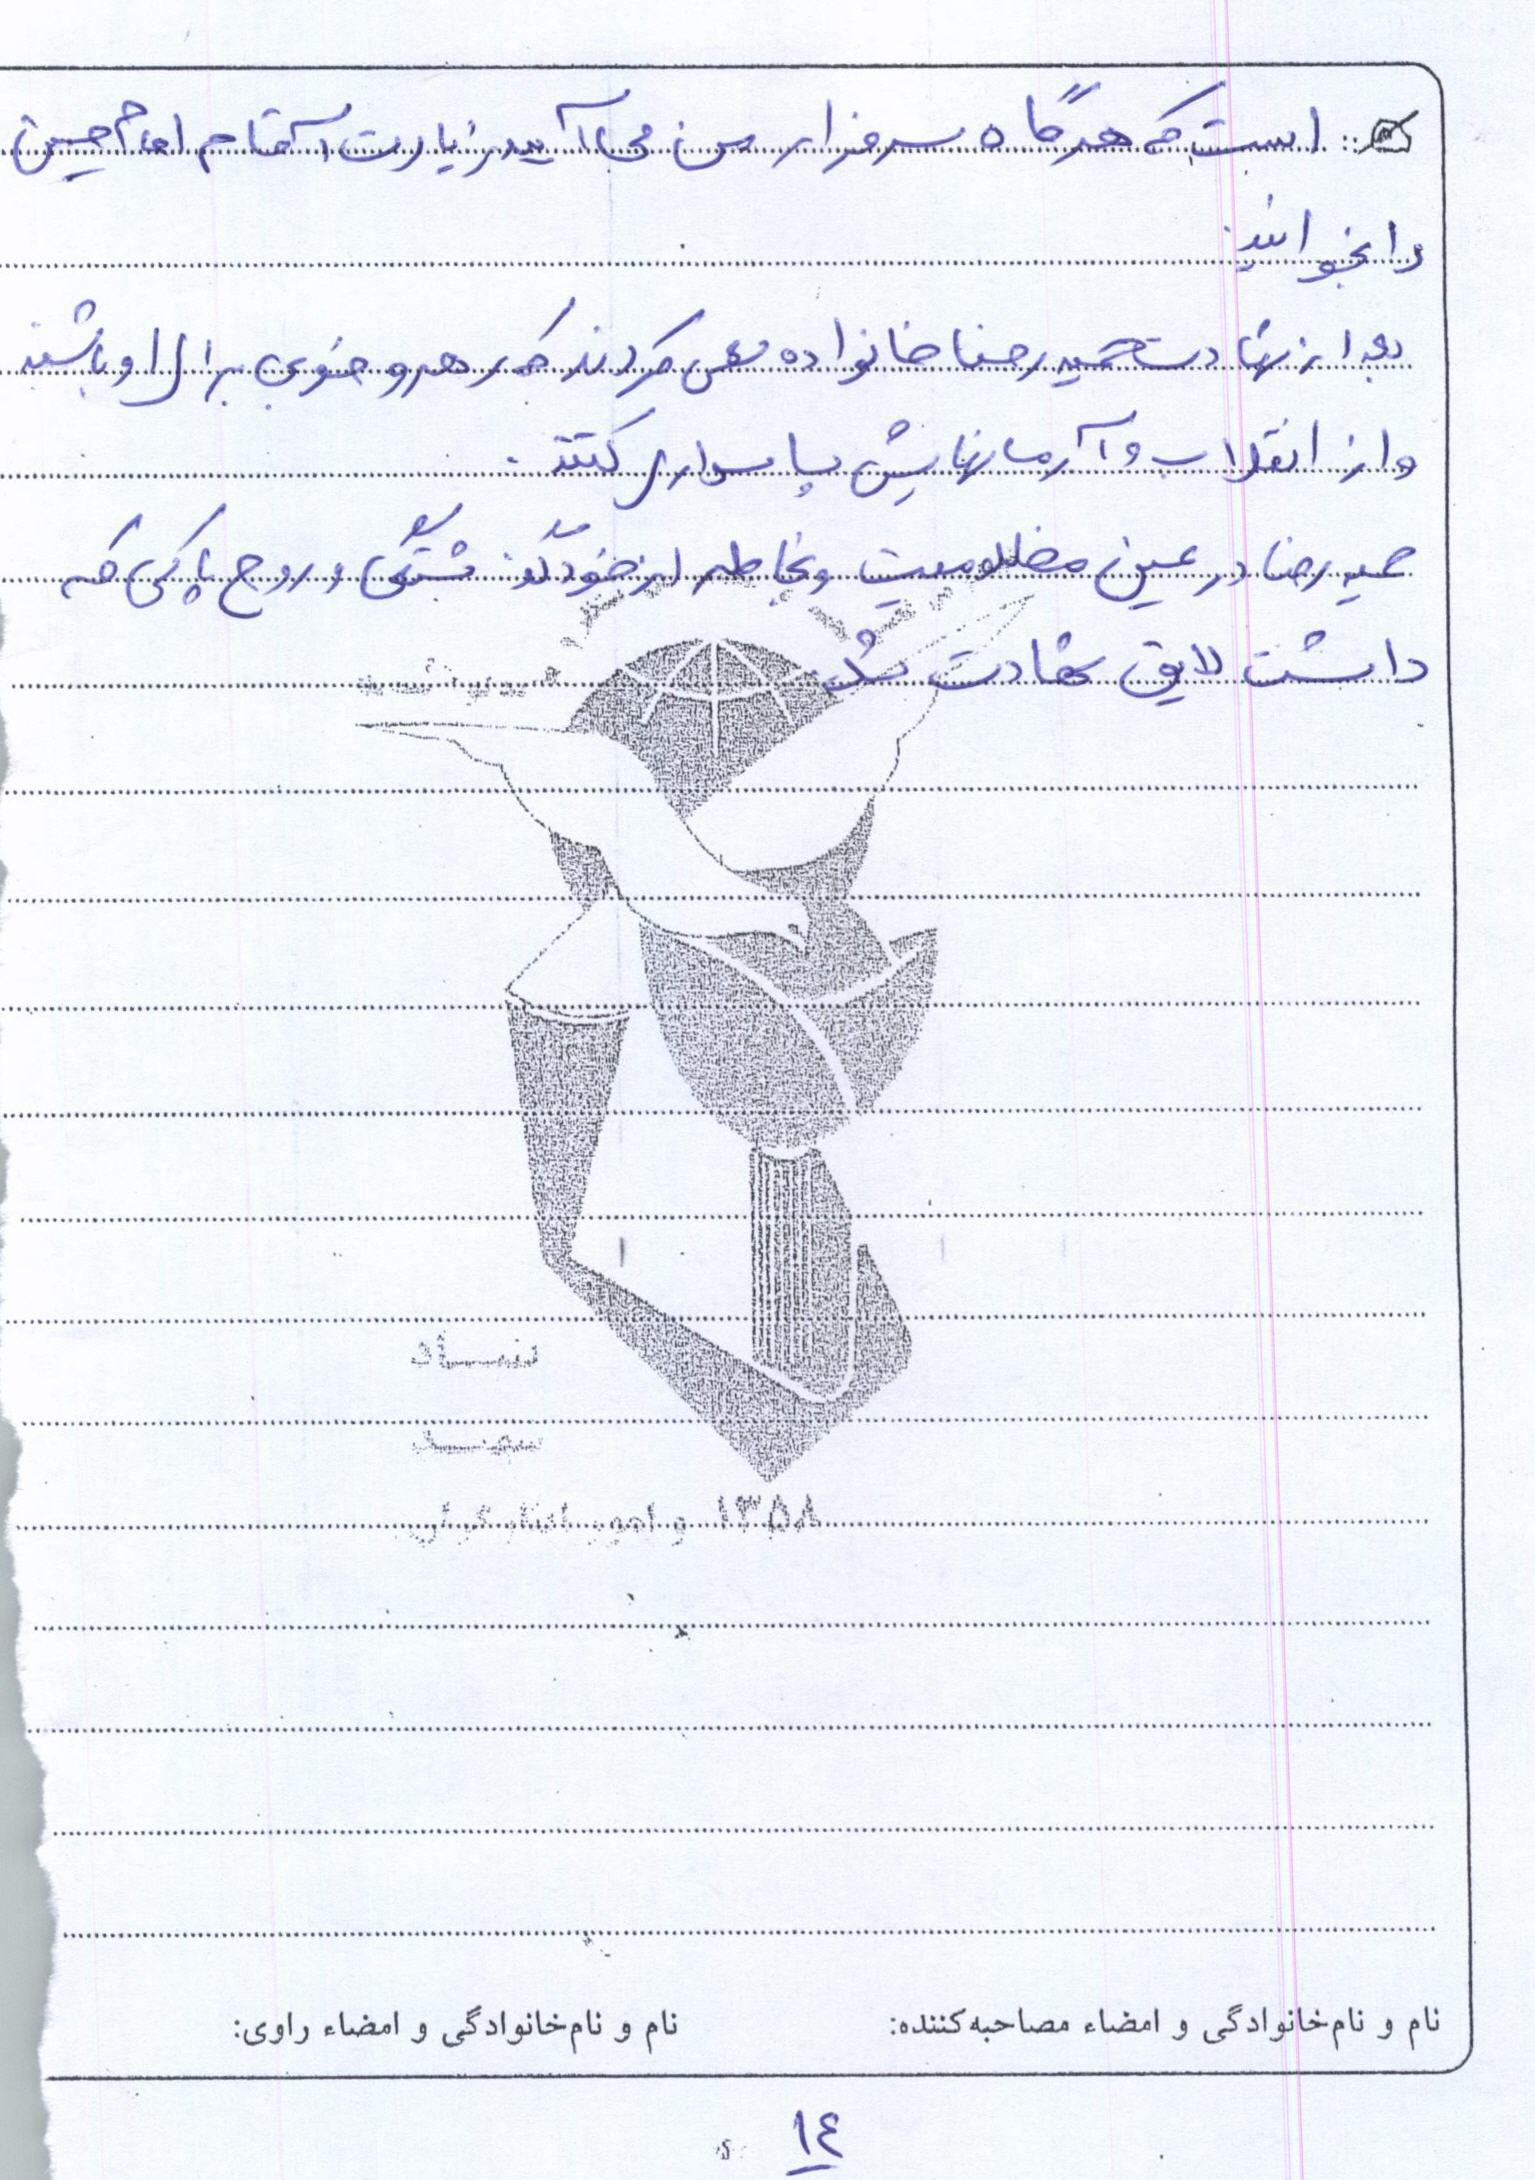 است که هرگاه سر مزار من می آیید زیارت آقام امام حسین
را بخوانید
بعد از شهادت حمیدرضا خانواده سعی کردند که رهرو خوبی برای او باشند
و از انقلاب و آرمانهایش پاسداری کنند.
حمیدرضا در عین مظلومیت و بخاطر از خودگذشتگی و روح پاکی که
داشت لایق شهادت شد.
بنیاد
شهید
و امور ایثارگران ۱۳۵۸
نام و نام‌خانوادگی و امضاء مصاحبه‌کننده: نام و نام‌خانوادگی و امضاء راوی:
۱٤